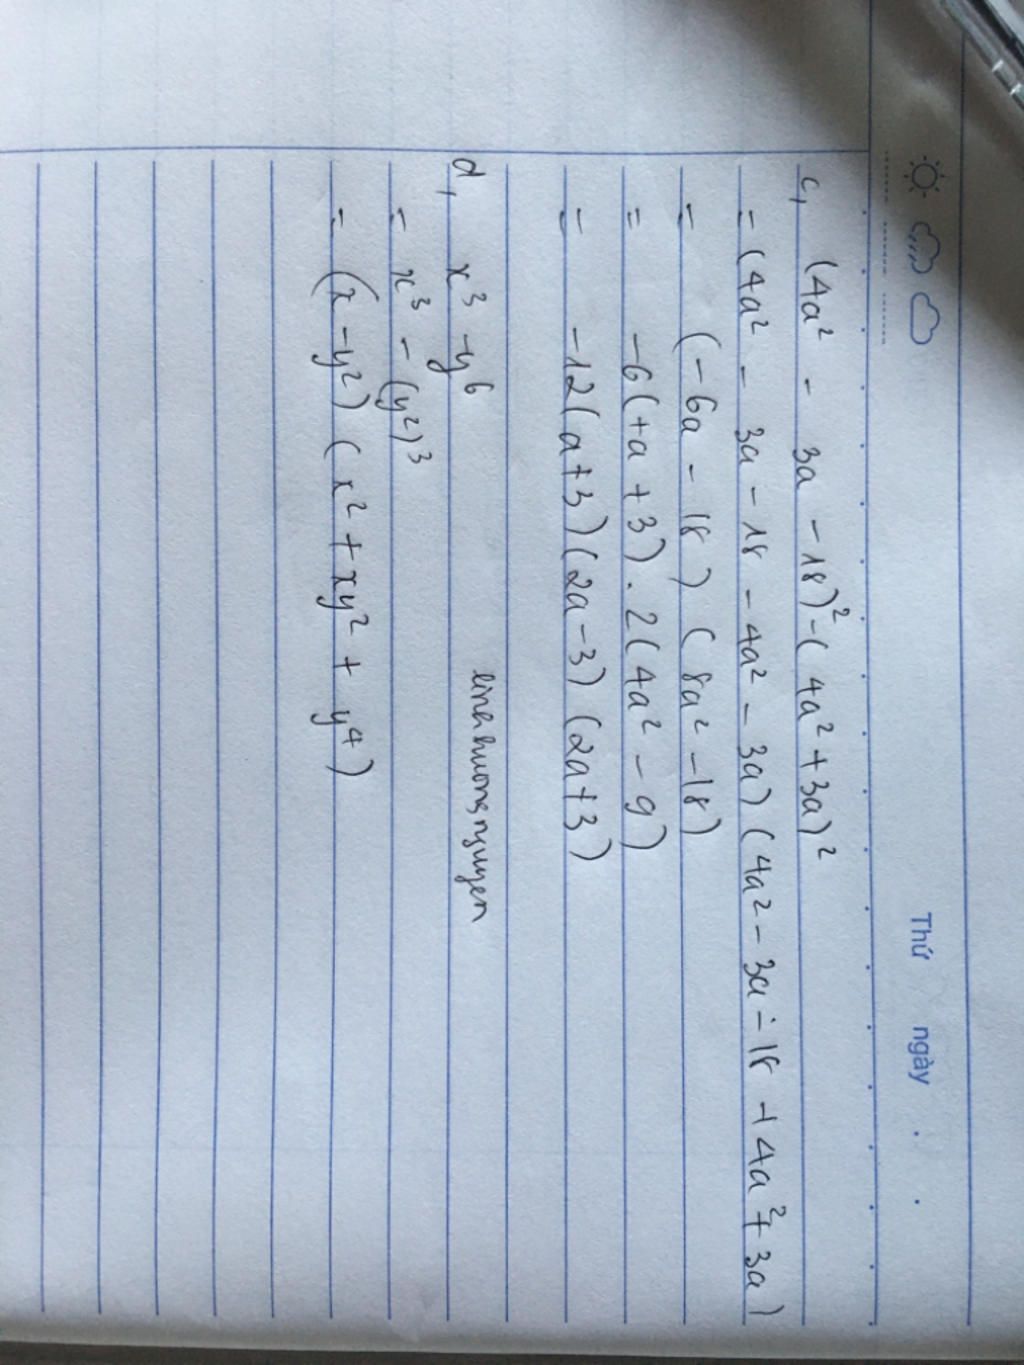 Thứ ngày
c, (4a² - 3a - 18)² - (4a² + 3a)²
= (4a² - 3a - 18 - 4a² - 3a) (4a² - 3a - 18 + 4a² + 3a)
= (-6a - 18) (8a² - 18)
= -6(+a + 3) . 2(4a² - 9)
= -12(a+3)(2a-3)(2a+3)
linhhuongnguyen
d, x³ - y⁶
= x³ - (y²)³
= (x - y²) (x² + xy² + y⁴)